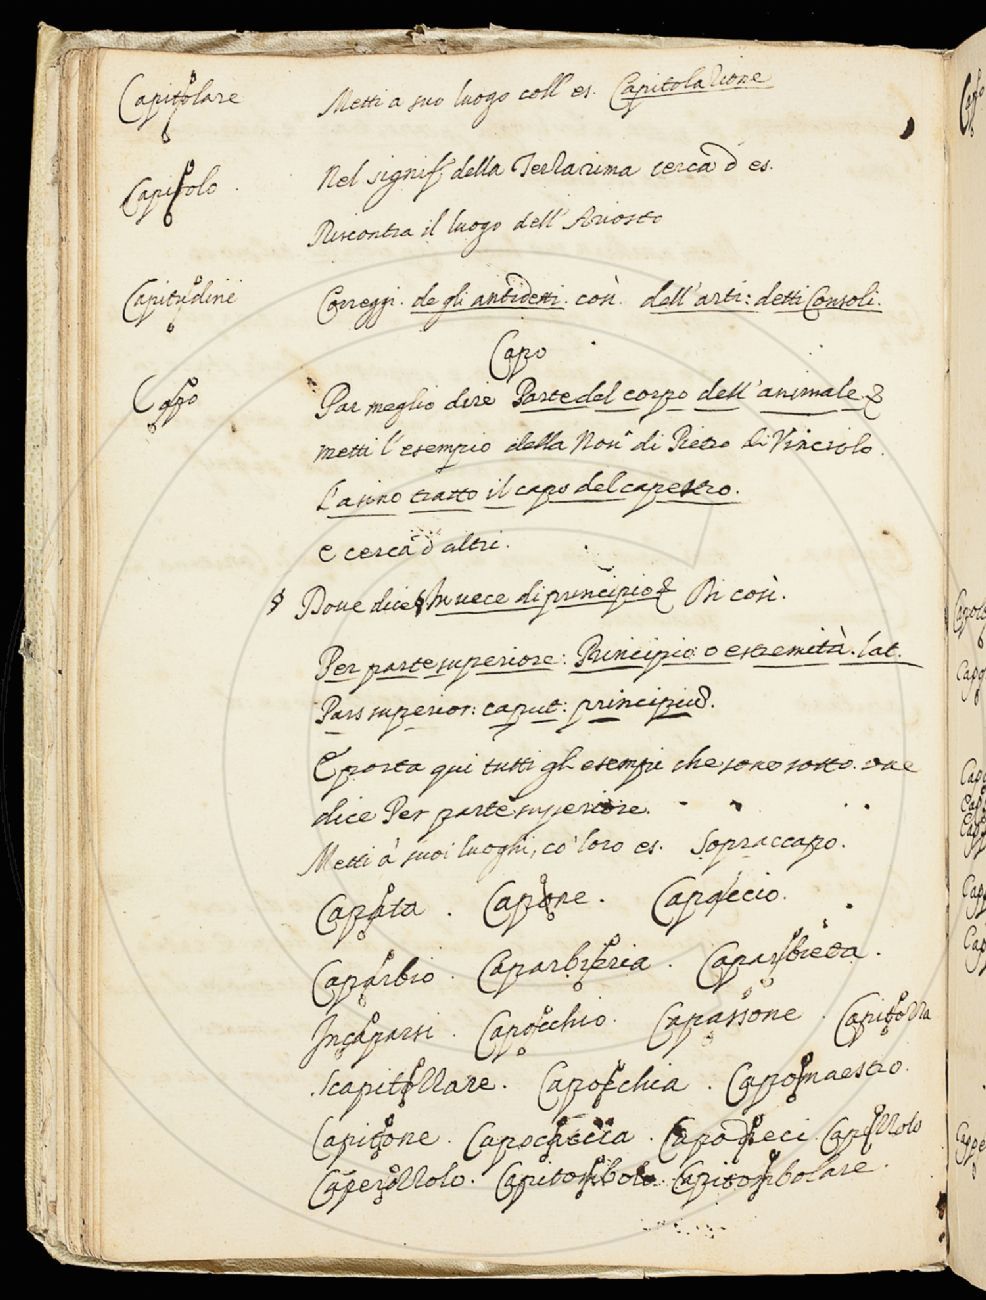 Capitolare Metti a suo luogo coll' es. Capitolazione
Capitolo. Nel signif. della Terzarima cerca d es.
Riscontra il luogo dell' Ariosto
Capitudini Correggi. de gli antidetti. così. dell'arti: detti Consoli.
Capo
Capo Par meglio dire Parte del corpo dell'animale &
metti l'esempio della Nov. di Pietro di Vinciolo.
L'asino tratto il capo del capestro.
e cerca d altri.
§ Doue dice § In uece di principio & Di così.
Per parte superiore: Principio o estremità. lat.
Pars superior: caput: principiu.
E porta qui tutti gli esempi che sono sotto. oue
dice Per parte superiore.
Metti a suoi luoghi, co' loro es. Sopraccapo.
Capata. Capone. Capoccio.
Caparbio. Caparbieria. Caparbietà.
Incaparsi. Capocchio. Capassone. Capitozza
Scapitozzare. Capocchia. Capomaestro.
Capitone. Capochetta. Capodieci. Capezzolo
Caperozzolo. Capitombolo. Capitombolare.